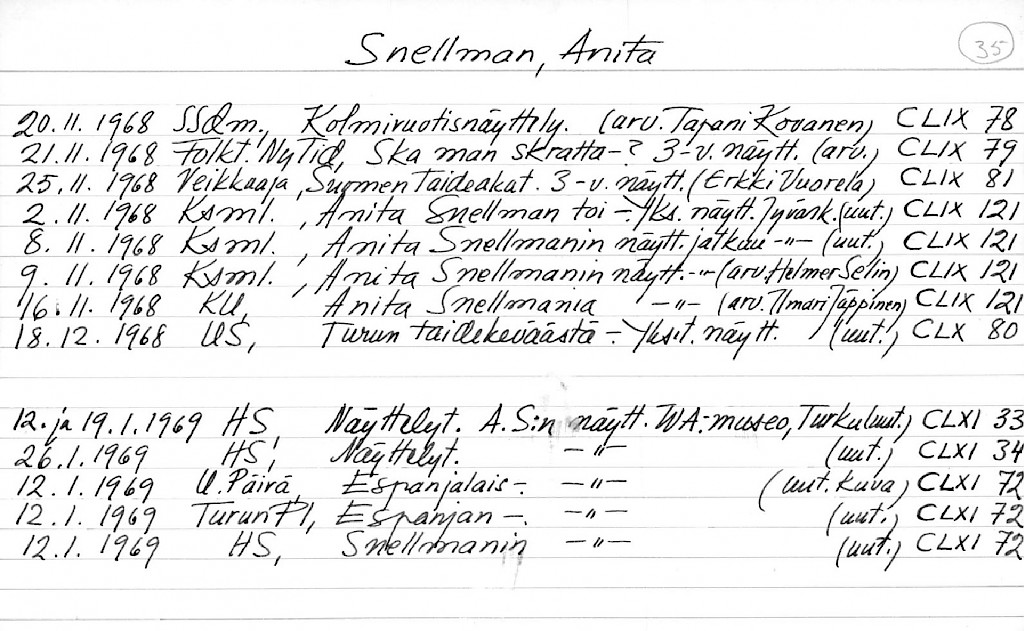 Snellman, Anita
35
20.11.1968 SSdm., Kolmivuotisnäyttely. (arv. Tapani Kovanen) CLIX 78
21.11.1968 Folkt. Ny Tid, Ska man skratta-? 3-v. näytt. (arv.) CLIX 79
25.11.1968 Veikkaaja, Suomen Taideakat. 3-v. näytt. (Erkki Vuorela) CLIX 81
2.11.1968 Ksml., Anita Snellman toi - Yks. näytt. Jyväsk. (uut.) CLIX 121
8.11.1968 Ksml., Anita Snellmanin näytt. jatkuu -"- (uut.) CLIX 121
9.11.1968 Ksml., Anita Snellmanin näytt. -"- (arv. Helmer Selin) CLIX 121
16.11.1968 KU, Anita Snellmania -"- (arv. Ilmari Jäppinen) CLIX 121
18.12.1968 US, Turun taidekeväästä - Yksit. näytt. (uut.) CLX 80
12. ja 19.1.1969 HS, Näyttelyt. A.S:n näytt. WA-museo, Turku (uut.) CLXI 33
26.1.1969 HS, Näyttelyt. -"- (uut.) CLXI 34
12.1.1969 U. Päivä, Espanjalais-. -"- (uut. kuva) CLXI 72
12.1.1969 Turun Pl, Espanjan -. -"- (uut.) CLXI 72
12.1.1969 HS, Snellmanin -"- (uut.) CLXI 72